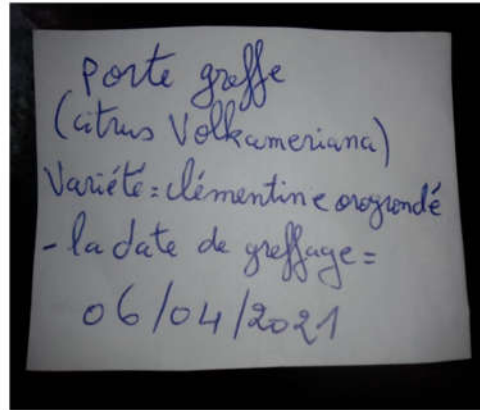 Porte greffe
(citrus Volkameriana)
Variété = clémentine orogrondé
- la date de greffage =
06/04/2021